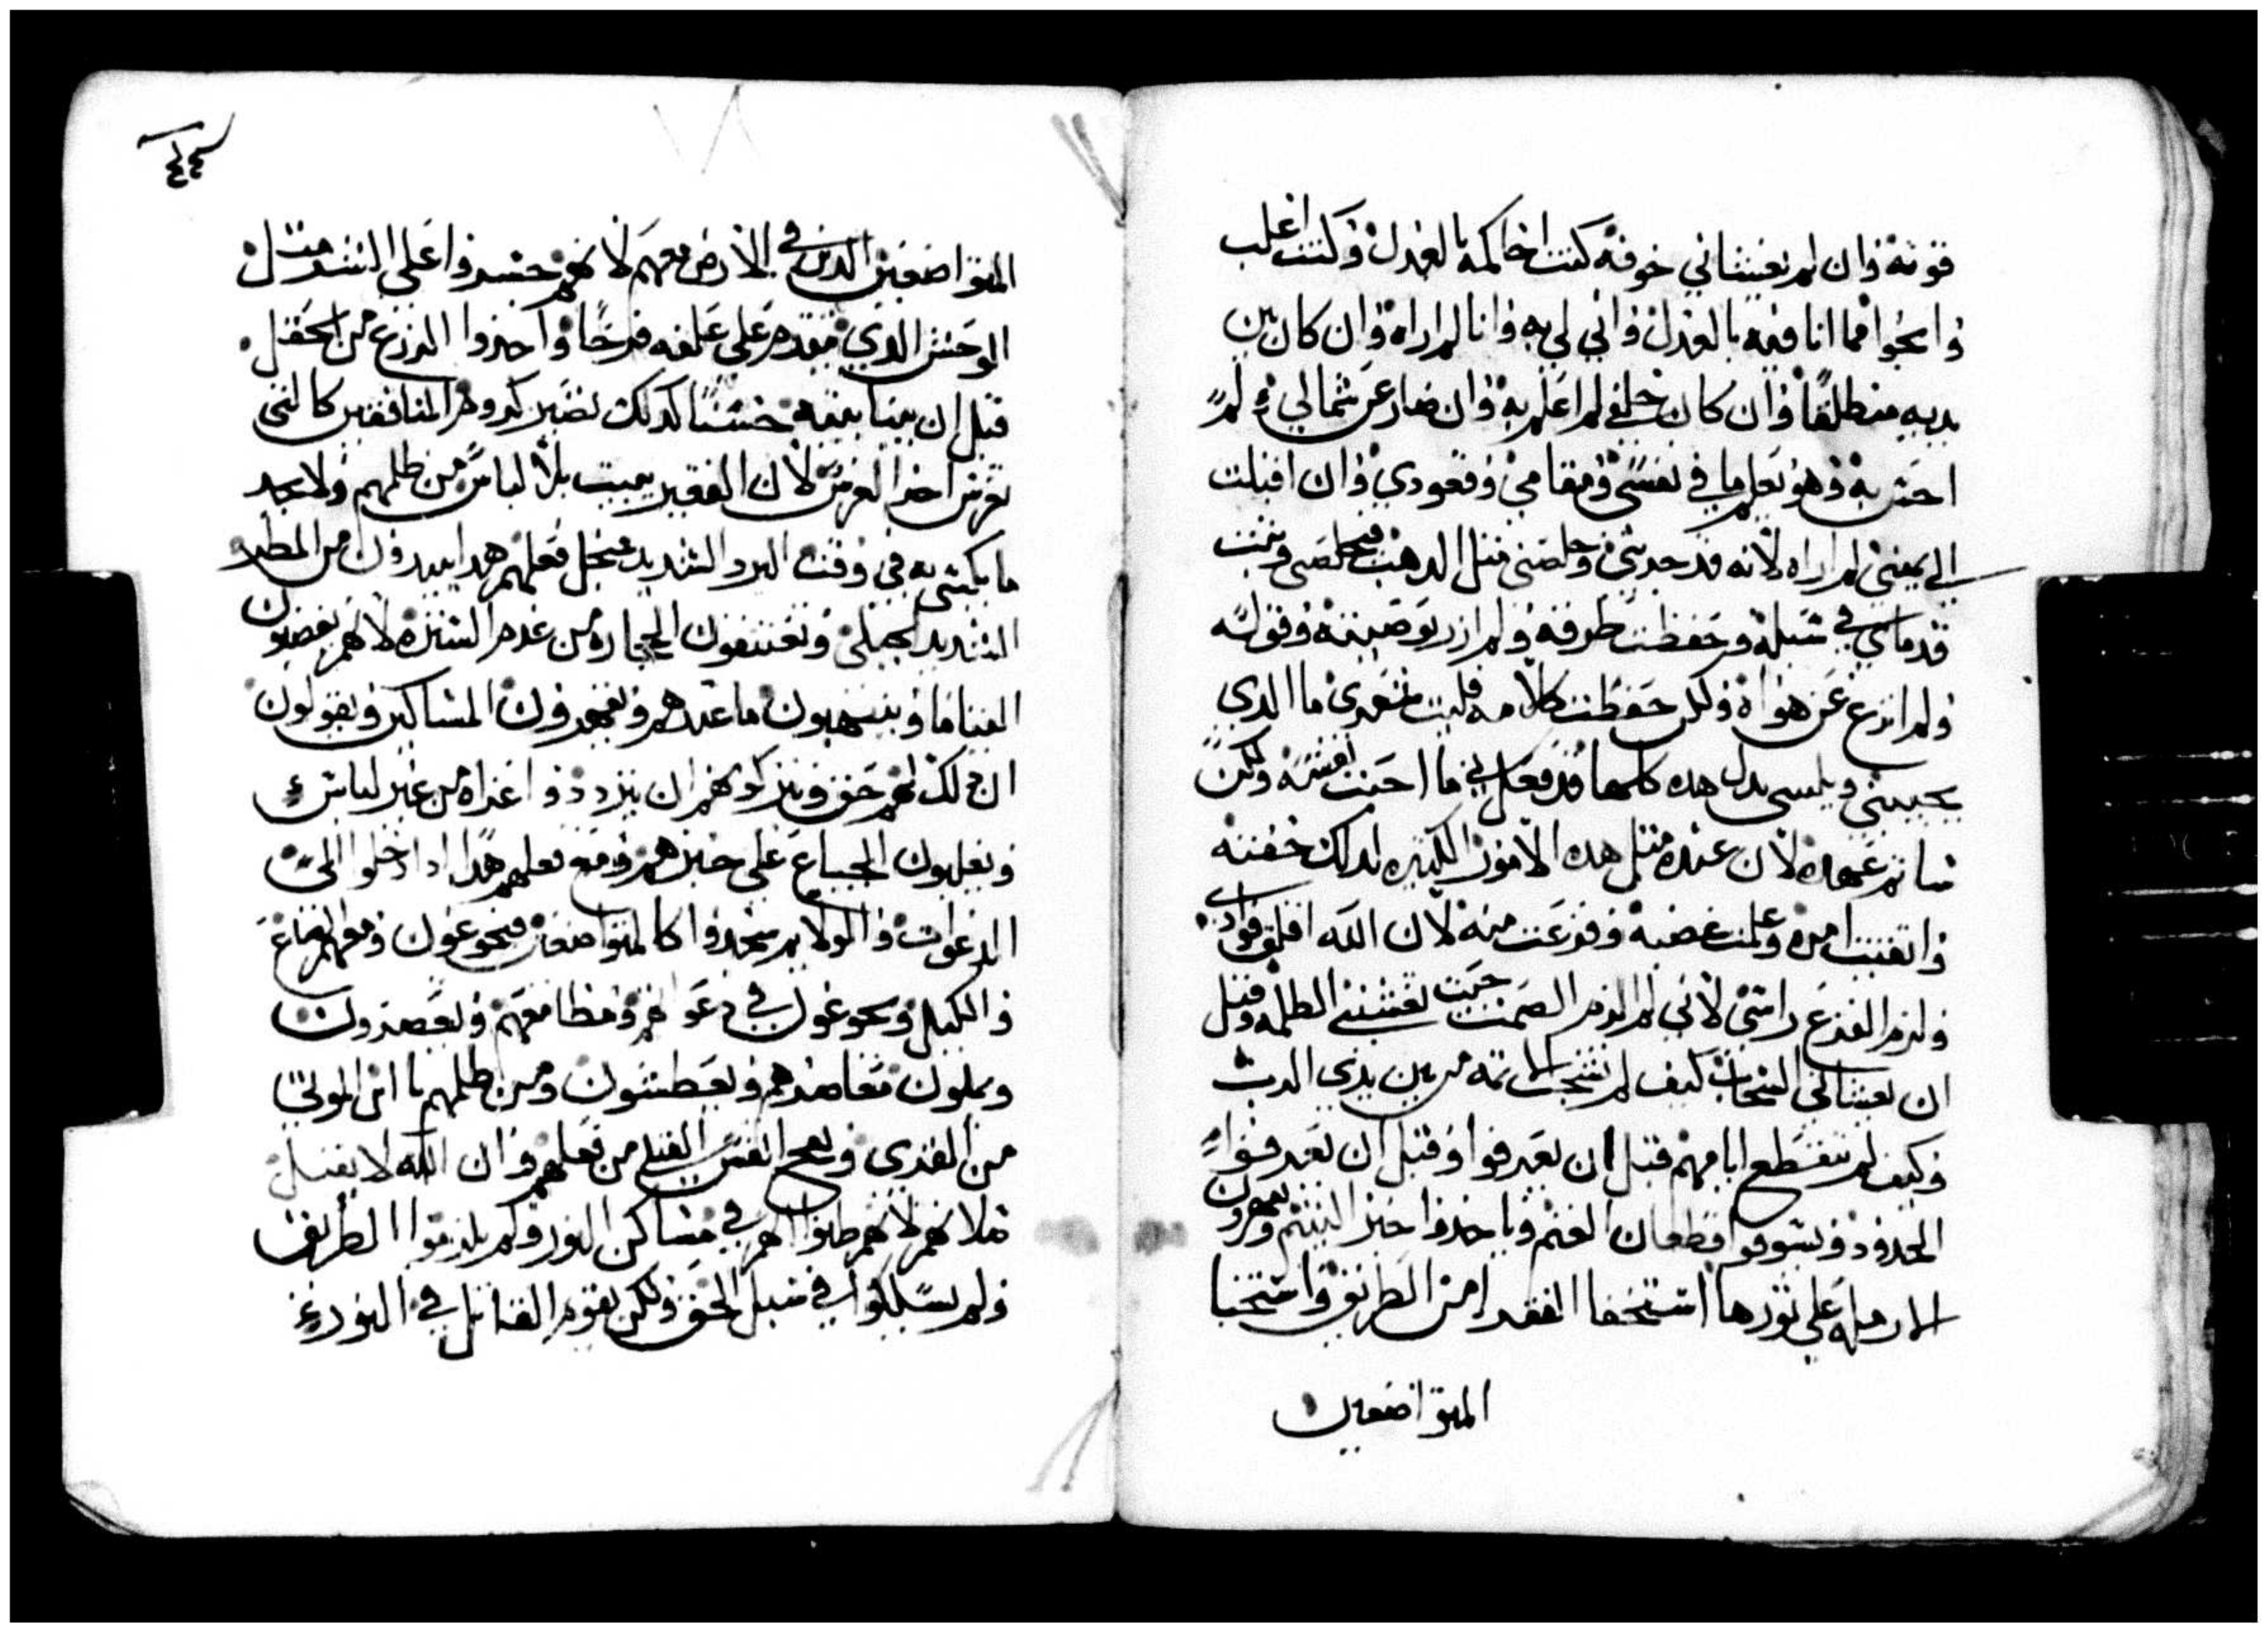 قوته وان لم يغشاني خوفه كنت احاكمه بالعدل وكنت اغلب
وانجوا مما انا فيه بالعدل واني لي به وانا لم اراه وان كان بين
يديه منطلقا وان كان خلفي لم اعلم به وان صار عن شمالي لم
احس به وهو يعلم ما في نفسي ومقامي وقعودي وان اقبلت
الي يميني لم اراه لانه قد جربني وخلصني مثل الدهب فخلصني وثبت
قدماي في سبله وحفظت طرقه ولم ازر بوصيته وقوله
ولم انزع عن هواه ولكن حفظت كلامه فليت شعري ما الدي
يجيبني ويلبسي بدل هده كلها قد فعل بي ما احبت نفسه ولكن
شا تم عهده لان عنده مثل هده الامور الكثيره لدلك خفته
واتقيت امره وعلمت غضبه وفزعت منه لان الله اقلق فوادي
ولزم الفزع راسي لاني لم الزم الصمت حيت تغشني الظلمه وقبل
ان يغشاني السحاب كيف لم تنجب الاثمه من بين يدي الرب
وكيف لم تنقطع ايامهم قبل ان يعرفوا وقبل ان يعرفوا
الحدود ويسوقوا قطعان الغنم وياخدوا خبز اليتيم ويقهرون
الارمله علي ثورها استخفا الفقرا من الطريق واستخبا
المتواضعين
٤٤
المتواضعين الدين في الارض معهم لانهم حسدوا علي الشر مثل
الوحش الدي يتقدم علي علفه فرحا واخدوا الزرع من الحقل
قبل ان يتنا ينقه خشنا كدلك تصير كروم المنافقين كالتي
تغرس اخر الغرس لان الفقير يبيت بلا لباس من ظلمهم ولا يجد
ما يكتسي به في وقت البرد الشديد من اجل فعلهم هدا يبيدون من المطر
الشديد الجبلي ويعتنقون الحجاره من عدم الستره لانهم يغصبون
اليتاما وينهبون ما عندهم ويقهرون المساكين ويقولون
ان دلك لهم حق ويتركونهم ان يترددوا عراه من غير لباس
ويغلبون الجياع علي خبزهم ومع فعلهم هدا ادا دخلوا الي
الدعوات والولايم سجدوا كالمتواضعين فيجوعون ومعهم الصاع
والكيل ويجوعون في دعواهم ومظا معهم ويعصرون
ويملون معاصرهم ويعطشون ومن ظلمهم يا ان الموتي
من القري ويضج انفس القتلي من فعلهم وان الله لا يقبل
صلاتهم لانهم ظلموا لهم في مساكن النور ولم يلزموا الطريق
ولم يسلكوا في سبل الحق ولكن يقوم القاتل في النور